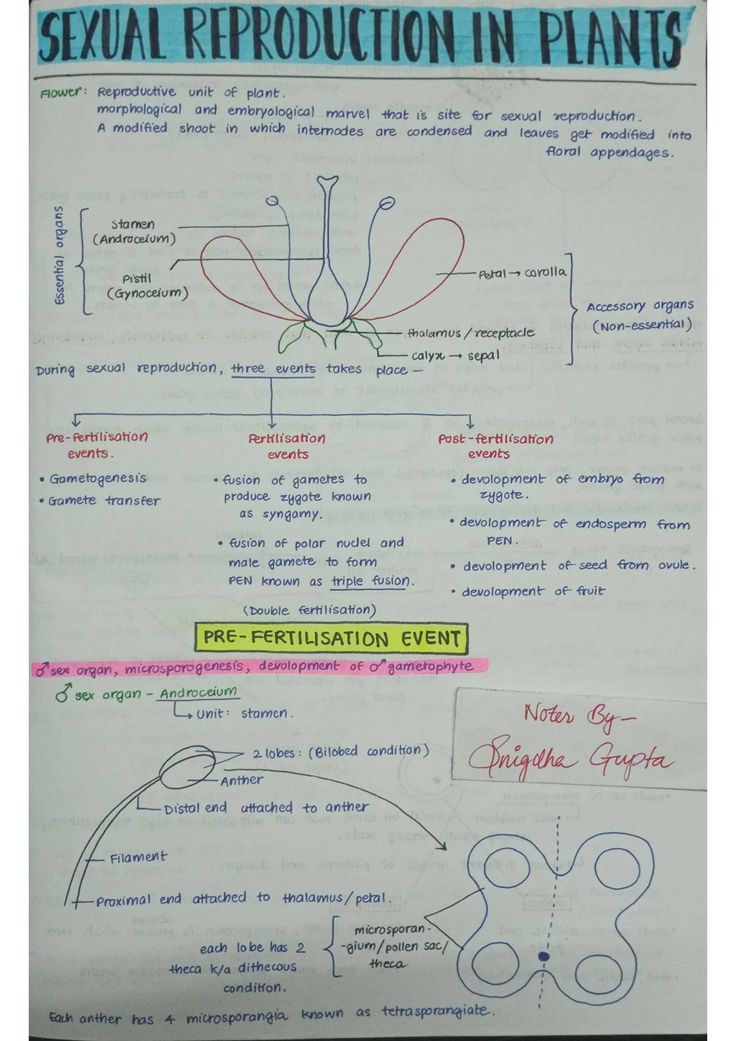 SEXUAL REPRODUCTION IN PLANTS
Flower: Reproductive unit of plant.
morphological and embryological marvel that is site for sexual reproduction.
A modified shoot in which internodes are condensed and leaves get modified into
floral appendages.
Essential organs
Stamen
(Androceium)
Pistil
(Gynoceium)
Petal → corolla
thalamus/receptacle
calyx → sepal
Accessory organs
(Non-essential)
During sexual reproduction, three events takes place —
Pre-fertilisation
events.
• Gametogenesis
• Gamete transfer
Fertilisation
events
• fusion of gametes to
produce zygote known
as syngamy.
• fusion of polar nuclei and
male gamete to form
PEN known as triple fusion.
(Double fertilisation)
Post-fertilisation
events
• devolopment of embryo from
zygote.
• devolopment of endosperm from
PEN.
• devolopment of seed from ovule.
• devolopment of fruit
PRE-FERTILISATION EVENT
♂ sex organ, microsporogenesis, devolopment of ♂ gametophyte
♂ sex organ - Androceium
↳ Unit: stamen.
Notes By-
Snigdha Gupta
2 lobes: (Bilobed condition)
Anther
Distal end attached to anther
Filament
Proximal end attached to thalamus/petal.
each lobe has 2
theca k/a dithecous
condition.
microsporan-
-gium/pollen sac/
theca
Each anther has 4 microsporangia known as tetrasporangiate.